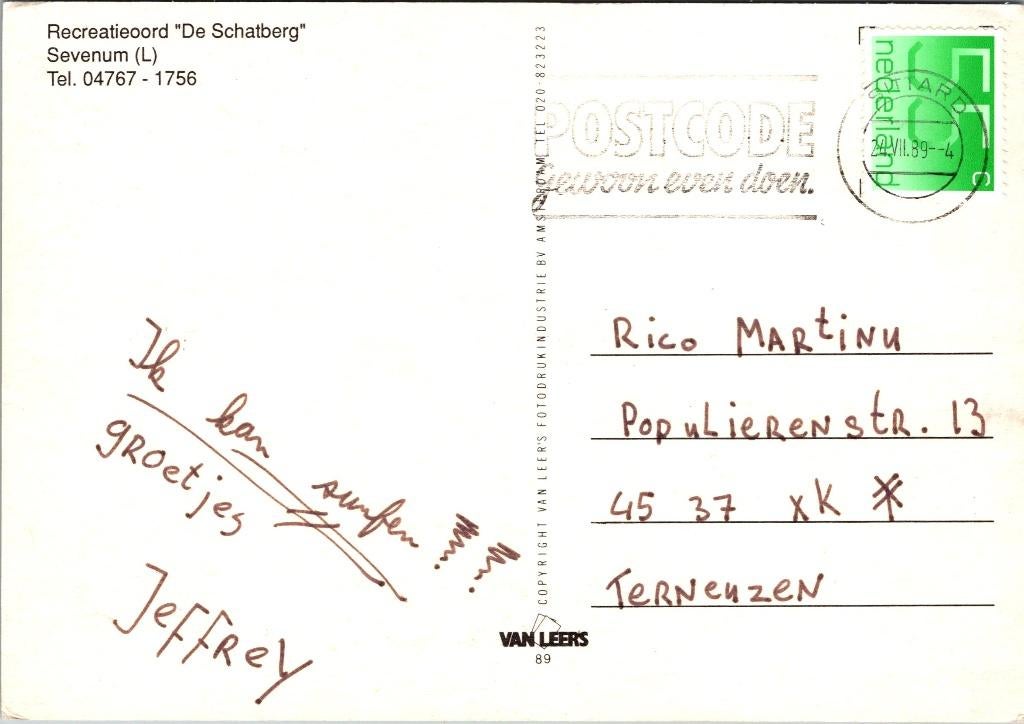 Recreatieoord "De Schatberg"
Sevenum (L)
Tel. 04767 - 1756
Ik kan surfen !!! !!!
groetjes
Jeffrey
COPYRIGHT VAN LEER'S FOTODRUKINDUSTRIE BV AMSTERDAM TEL 020-823223
VAN LEER'S
89
POSTCODE
Gewoon even doen.
nederland
55 c
SITTARD
24.VII.89--4
Rico Martinu
Populierenstr. 13
45 37 XK
Terneuzen